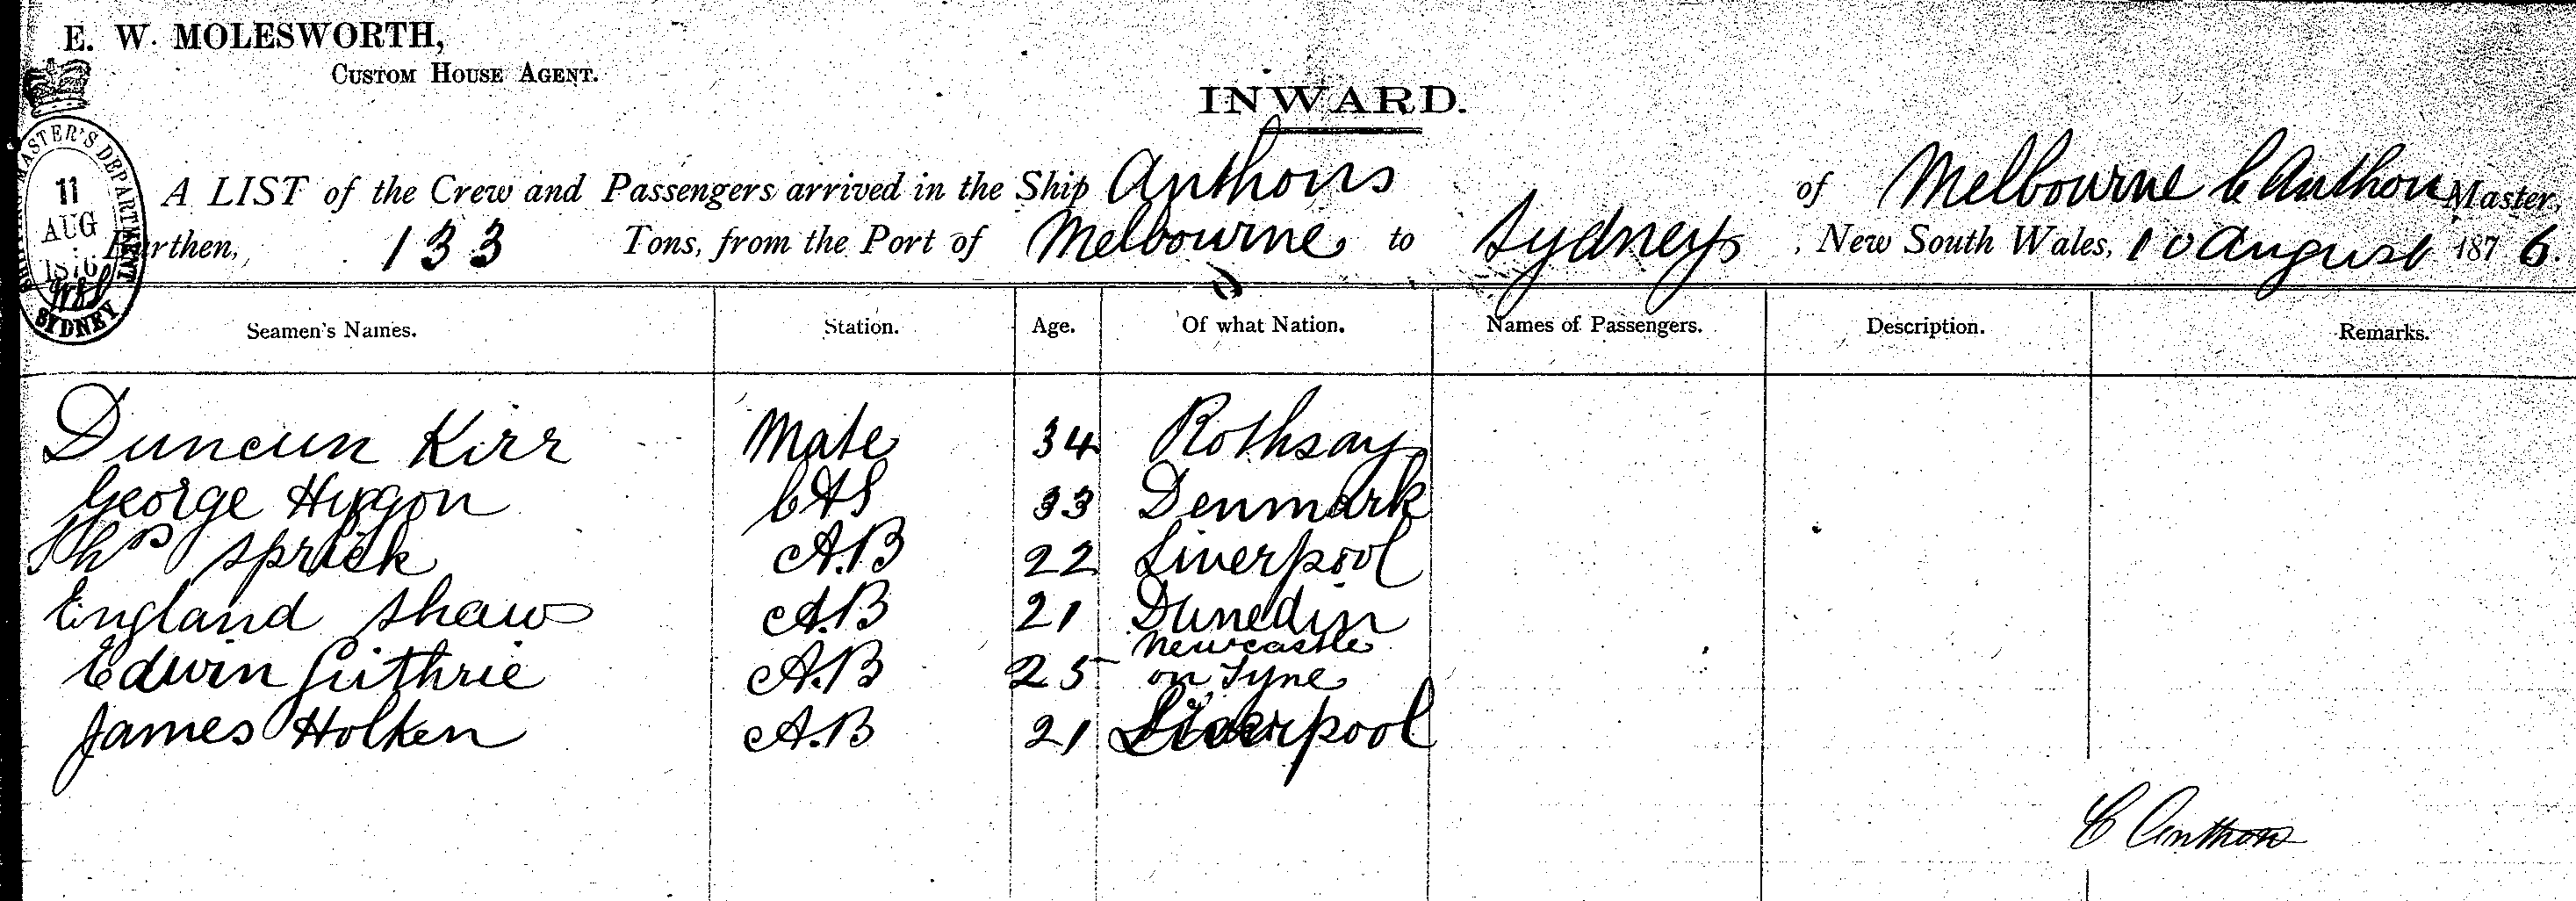 E. W. MOLESWORTH,
CUSTOM HOUSE AGENT.
INWARD.
A LIST of the Crew and Passengers arrived in the Ship Anthons of Melbourne C Anthon Master,
Burthen, 133 Tons, from the Port of Melbourne to Sydney, New South Wales, 10 August 1876.
MASTER'S DEPARTMENT
11
AUG
1876
SYDNEY
Seamen's Names. Station. Age. Of what Nation. Names of Passengers. Description. Remarks.
Duncun Kirr Mate 34 Rothsay
George 33 Denmark
Thos A.B 22 Liverpool
England Shaw A.B 21 Dunedin
Newcastle
Edwin Guthrie A.B 25 on Tyne
James Holken A.B 21 Liverpool
C Anthon